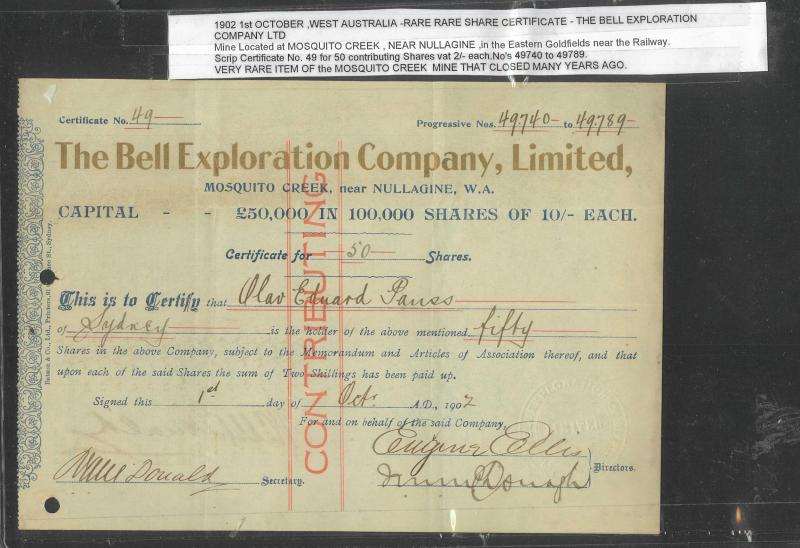 1902 1st OCTOBER ,WEST AUSTRALIA -RARE RARE SHARE CERTIFICATE - THE BELL EXPLORATION
COMPANY LTD
Mine Located at MOSQUITO CREEK , NEAR NULLAGINE ,in the Eastern Goldfields near the Railway.
Scrip Certificate No. 49 for 50 contributing Shares vat 2/- each.No's 49740 to 49789.
VERY RARE ITEM OF the MOSQUITO CREEK MINE THAT CLOSED MANY YEARS AGO.
Certificate No. 49
Progressive Nos. 49740 to 49789
The Bell Exploration Company, Limited,
MOSQUITO CREEK, near NULLAGINE, W.A.
CAPITAL - - £50,000 IN 100,000 SHARES OF 10/- EACH.
Certificate for 50 Shares.
This is to Certify that Olav Eduard Pauss
of Sydney is the holder of the above mentioned fifty
Shares in the above Company, subject to the Memorandum and Articles of Association thereof, and that
upon each of the said Shares the sum of Two Shillings has been paid up.
Signed this 1st day of Octr A.D., 1902
For and on behalf of the said Company,
Eugene Ellis
Donald Secretary.
Directors.
CONTRIBUTING
Batson & Co., Ltd., Printers, Sydney.